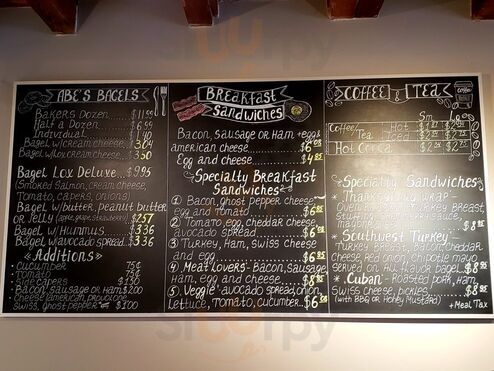 ABE'S BAGELS
BAKERS DOZEN
Half a Dozen
Individual
Bagel w/cream cheese
Bagel w/lox cream cheese
Bagel Lox Deluxe $9.95
(Smoked Salmon, cream cheese,
Tomato, capers, onions)
Bagel w/butter, peanut butter
or Jelly (apple, grape, strawberry) $257
Bagel w/Hummus $336
Bagel w/avocado spread $336
Additions
Cucumber 75¢
Tomato 75¢
Side capers $130
Bacon, sausage or ham $200
Cheese (american, provolone,
swiss, ghost pepper $100
BREAKFAST
SANDWICHES
Bacon, sausage or Ham + egg &
american cheese
Egg and cheese $4.85
Specialty Breakfast
Sandwiches
1 Bacon, ghost pepper cheese
egg and tomato
2 Tomato, egg, cheddar cheese
avocado spread
3 Turkey, Ham, Swiss cheese
and egg
4 Meat Lovers- Bacon, Sausage
Ham, egg and cheese
5 Veggie- avocado spread, onion,
Lettuce, Tomato, cucumber
COFFEE & TEA
Sm
Coffee/ Hot
Tea Iced
Hot Cocoa
*Specialty Sandwiches
* Thanksgiving Wrap -
Oven Turkey Breast,
Stuffing, sauce,
mayone
* Southwest Turkey-
Turkey Breast, Bacon, Cheddar
cheese, red onion, chipotle mayo
served on Au. flavor bagel
* Cuban - Roasted pork, ham,
Swiss cheese, pickles
(with BBQ or Honey Mustard)
+Meal Tax